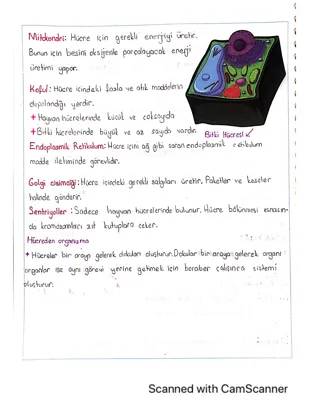 Mitokondri: Hücre için gerekli enerjiyi üretir.
Bunun için besini oksijenle parçalayacak enerji
üretimi yapar.
Koful: Hücre içindeki fazla ve atık maddelerin
depolandığı yerdir.
+ Hayvan hücrelerinde küçük ve çok sayıda
+ Bitki hücrelerinde büyük ve az sayıda vardır.
Bitki Hücresi
Endoplazmik Retikulum: Hücre içini ağ gibi saran endoplazmik retikulum
madde iletiminde görevlidir.
Golgi cisimciği: Hücre içindeki gerekli salgıları üretir. Paketler ve keseler
halinde gönderir.
Sentriyoller: Sadece hayvan hücrelerinde bulunur. Hücre bölünmesi esnasın-
da kromozomları zıt kutuplara çeker.
Hücreden organizma
+ Hücreler bir araya gelerek dokuları oluşturur. Dokular bir araya gelerek organı
organlar ise aynı görevi yerine getirmek için beraber çalışınca sistemi
oluşturur.
Scanned with CamScanner